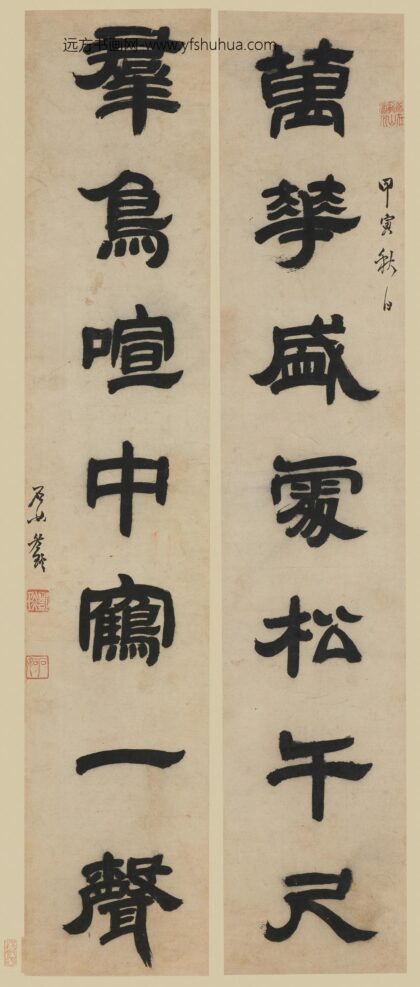 远方书画网-www.yfshuhua.com
萬華盛處松千尺
甲寅秋日
羣鳥喧中鶴一聲
石如鄧琰